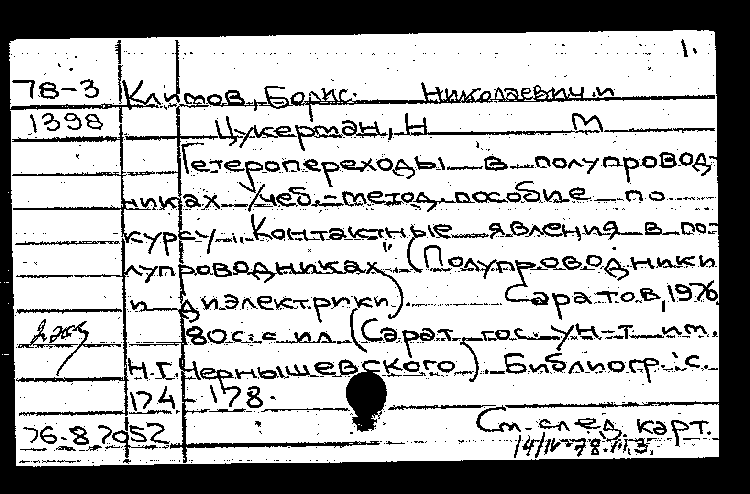 1.
78-3 Климов, Борис Николаевич и
1398 Цукерман, Н М
Гетеропереходы в полупровод-
никах Учеб.-метод. пособие по
курсу „Контактные явления в по-
лупроводниках" (Полупроводники
и диэлектрики). Саратов, 1976
2 экз 180с. с ил (Сарат. гос. ун-т им.
Н.Г. Чернышевского) Библиогр.: с.
174-178.
76.8.7052 См. след. карт.